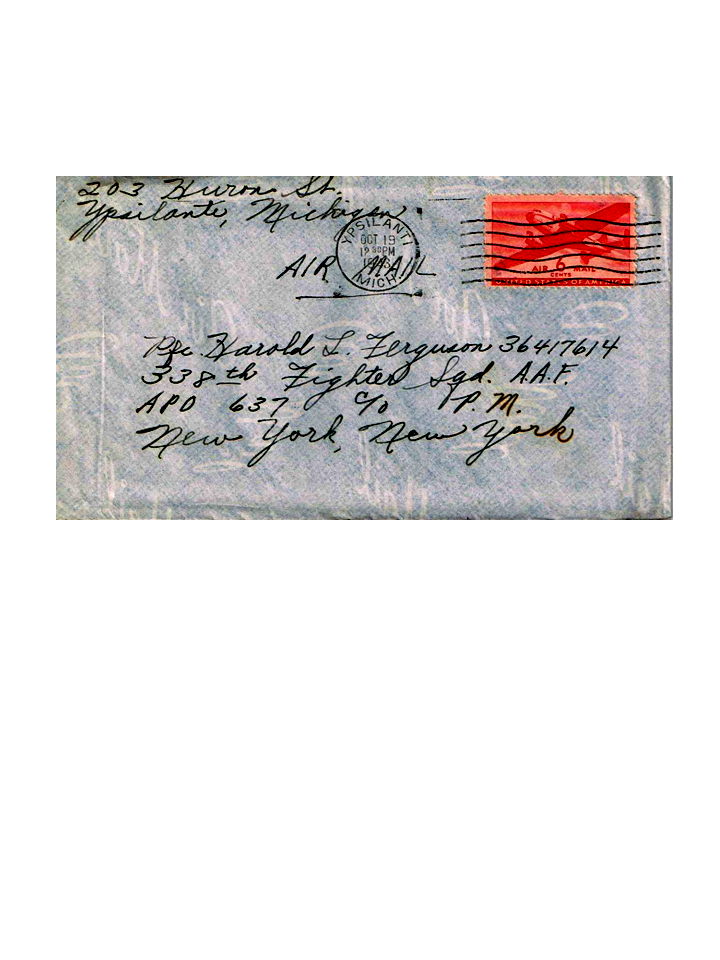 203 Huron St.
Ypsilante, Michigan
YPSILANTI
OCT 19
12 30PM
MICH.
AIR MAIL
AIR 6 MAIL
CENTS
UNITED STATES OF AMERICA
Pfc. Harold L. Ferguson 36417614
338th Fighter Sqd. A.A.F.
APO 637 c/o P.M.
New York, New York